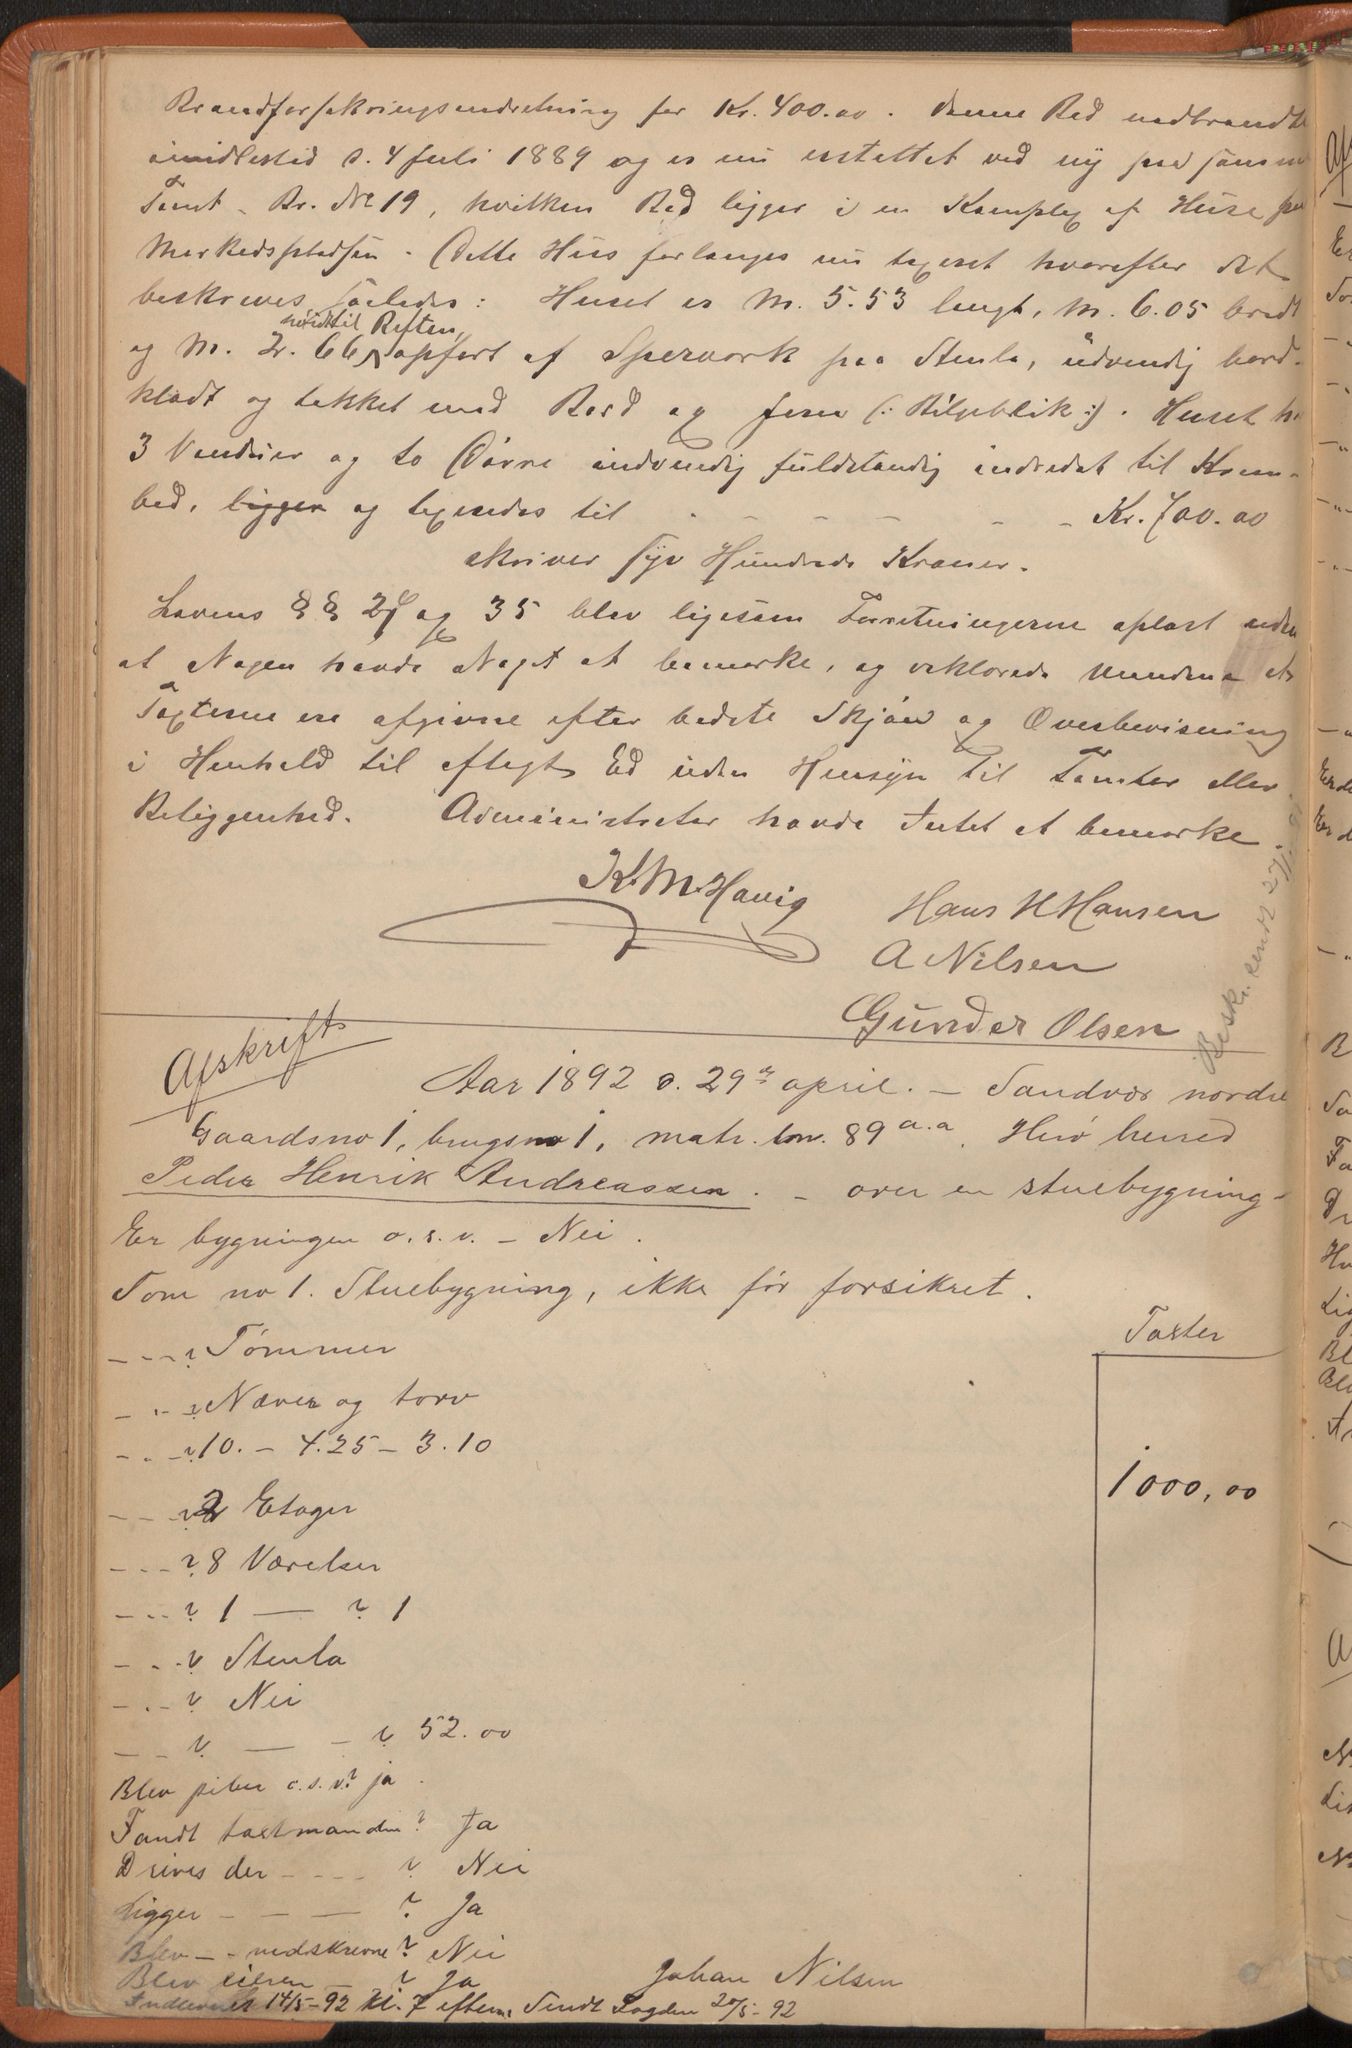 Brandforsikringsindretning for Kr. 400.00. denne Bod nedbrandte
imidlertid d. 4 Juli 1889 og er nu erstattet ved ny paa samme
Tomt - Br. No 19, hvilken Bod ligger i en Komplex af Huse paa
Markedspladsen. Dette Hus forlanges nu taxeret hvorefter det
beskrives saaledes: Huset er M. 5.53 langt, M. 6.05 bredt
høidt til Røsten,
og M. 2.66 opført af Sperverk paa Stenla, udvendig bord-
klædt og tækket med Bord og Jern (: Bølgeblik :). Huset har
3 Venduer og to Dørre indvendig fuldstændig indredet til Kram-
bod, ligger og taxeredes til - - - - - - Kr. 700.00
skriver Syv Hundrede Kroner.
Lovens §§ 27 og 35 blev ligesom Forretningerne oplæst uden
at Nogen havde Noget at bemærke, og erklærede Mændene at
Taxterne ere afgivne efter bedste Skjøn og Overbevisning
i Henhold til aflagt Ed uden Hensyn til Tomter eller
Beliggenhed. Administrator havde Intet at bemærke.
K. M. Havig Hans H Hansen
A Nilsen
Gunder Olsen
Beskr. sendt 27/
Afskrift
Aar 1892 d. 29de april. - Sandvær nordre
Gaardsno 1, brugsno 1, matr. lnr. 89 a.a. Herø herred
Peder Henrik Andreassen. - over en stuebygning -
Er bygningen o.s.v. - Nei.
Som no 1. Stuebygning, ikke før forsikret.
Taxter
- - - ? Tømmer
- - - ? Næver og torv
- - - ? 10. - 4.25 - 3.10
1000,00
- - - ? 2 Etager
- - - ? 8 Værelser
- - - ? 1 — ? 1
- - - ? Stenla
- - - ? Nei
- - ? — - ? 52.00
Blev piber o.s.v.? ja.
Fandt taxtmændene? Ja
Drives der - - - - ? Nei
Ligger - - — ? Ja
Blev - - nedskrevne? Nei
Blev eieren - ? Ja
Johan Nilsen
Indleveret 14/5-92 kl. 7 efterm. Sendt Fogden 20/5-92